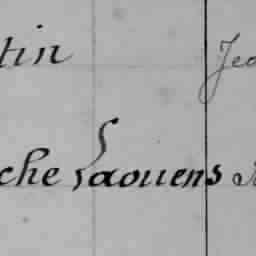 tin Jea
che Laouens